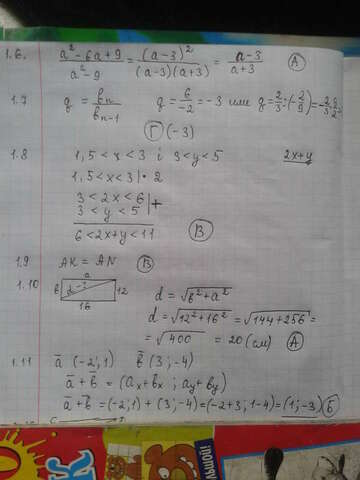 1.6. (a²-6a+9)/(a²-9) = (a-3)²/((a-3)(a+3)) = (a-3)/(a+3) А
1.7 q = bn/bn-1 q = 6/-2 = -3 или q = 2/3 : (-2/9) =
Г (-3)
1.8 1,5 < x < 3 і 3 < y < 5 2x+y
1,5 < x < 3 | · 2
3 < 2x < 6
3 < y < 5 | +
6 < 2x+y < 11 В
1.9 AK = AN В
a
1.10 в d - ? 12 d = √в²+a²
16 d = √12²+16² = √144+256 =
= √400 = 20 (см) А
1.11 a̅ (-2; 1) b̅ (3; -4)
a̅ + b̅ = (ax+bx ; ay+by)
a̅+b̅ = (-2; 1) + (3; -4) = (-2+3; 1-4) = (1; -3) Б
ольшой!